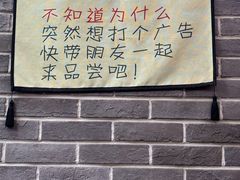 不知道为什么
突然想打个广告
快带朋友一起
来品尝吧！